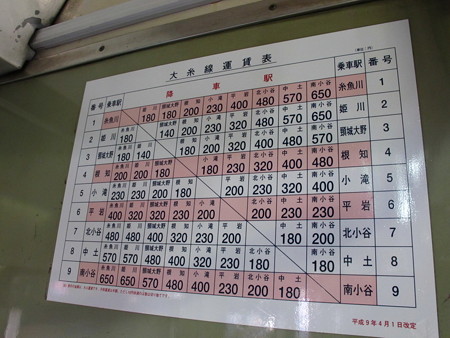 大糸線運賃表
(単位:円)
降車駅
番号 乗車駅 乗車駅 番号
1 糸魚川 姫川 180 頸城大野 180 根知 200 小滝 230 平岩 400 北小谷 480 中土 570 南小谷 650 糸魚川 1
2 姫川 糸魚川 180 頸城大野 140 根知 200 小滝 230 平岩 320 北小谷 480 中土 570 南小谷 570 姫川 2
3 頸城大野 糸魚川 180 姫川 140 根知 180 小滝 200 平岩 320 北小谷 400 中土 480 南小谷 570 頸城大野 3
4 根知 糸魚川 200 姫川 200 頸城大野 180 小滝 180 平岩 230 北小谷 320 中土 400 南小谷 480 根知 4
5 小滝 糸魚川 230 姫川 230 頸城大野 200 根知 180 平岩 200 北小谷 230 中土 320 南小谷 320 小滝 5
6 平岩 糸魚川 400 姫川 320 頸城大野 320 根知 230 小滝 200 北小谷 200 中土 230 南小谷 230 平岩 6
7 北小谷 糸魚川 480 姫川 480 頸城大野 400 根知 320 小滝 230 平岩 200 中土 180 南小谷 200 北小谷 7
8 中土 糸魚川 570 姫川 570 頸城大野 480 根知 400 小滝 320 平岩 230 北小谷 180 南小谷 180 中土 8
9 南小谷 糸魚川 650 姫川 570 頸城大野 570 根知 480 小滝 320 平岩 230 北小谷 200 中土 180 南小谷 9
平成9年4月1日改定